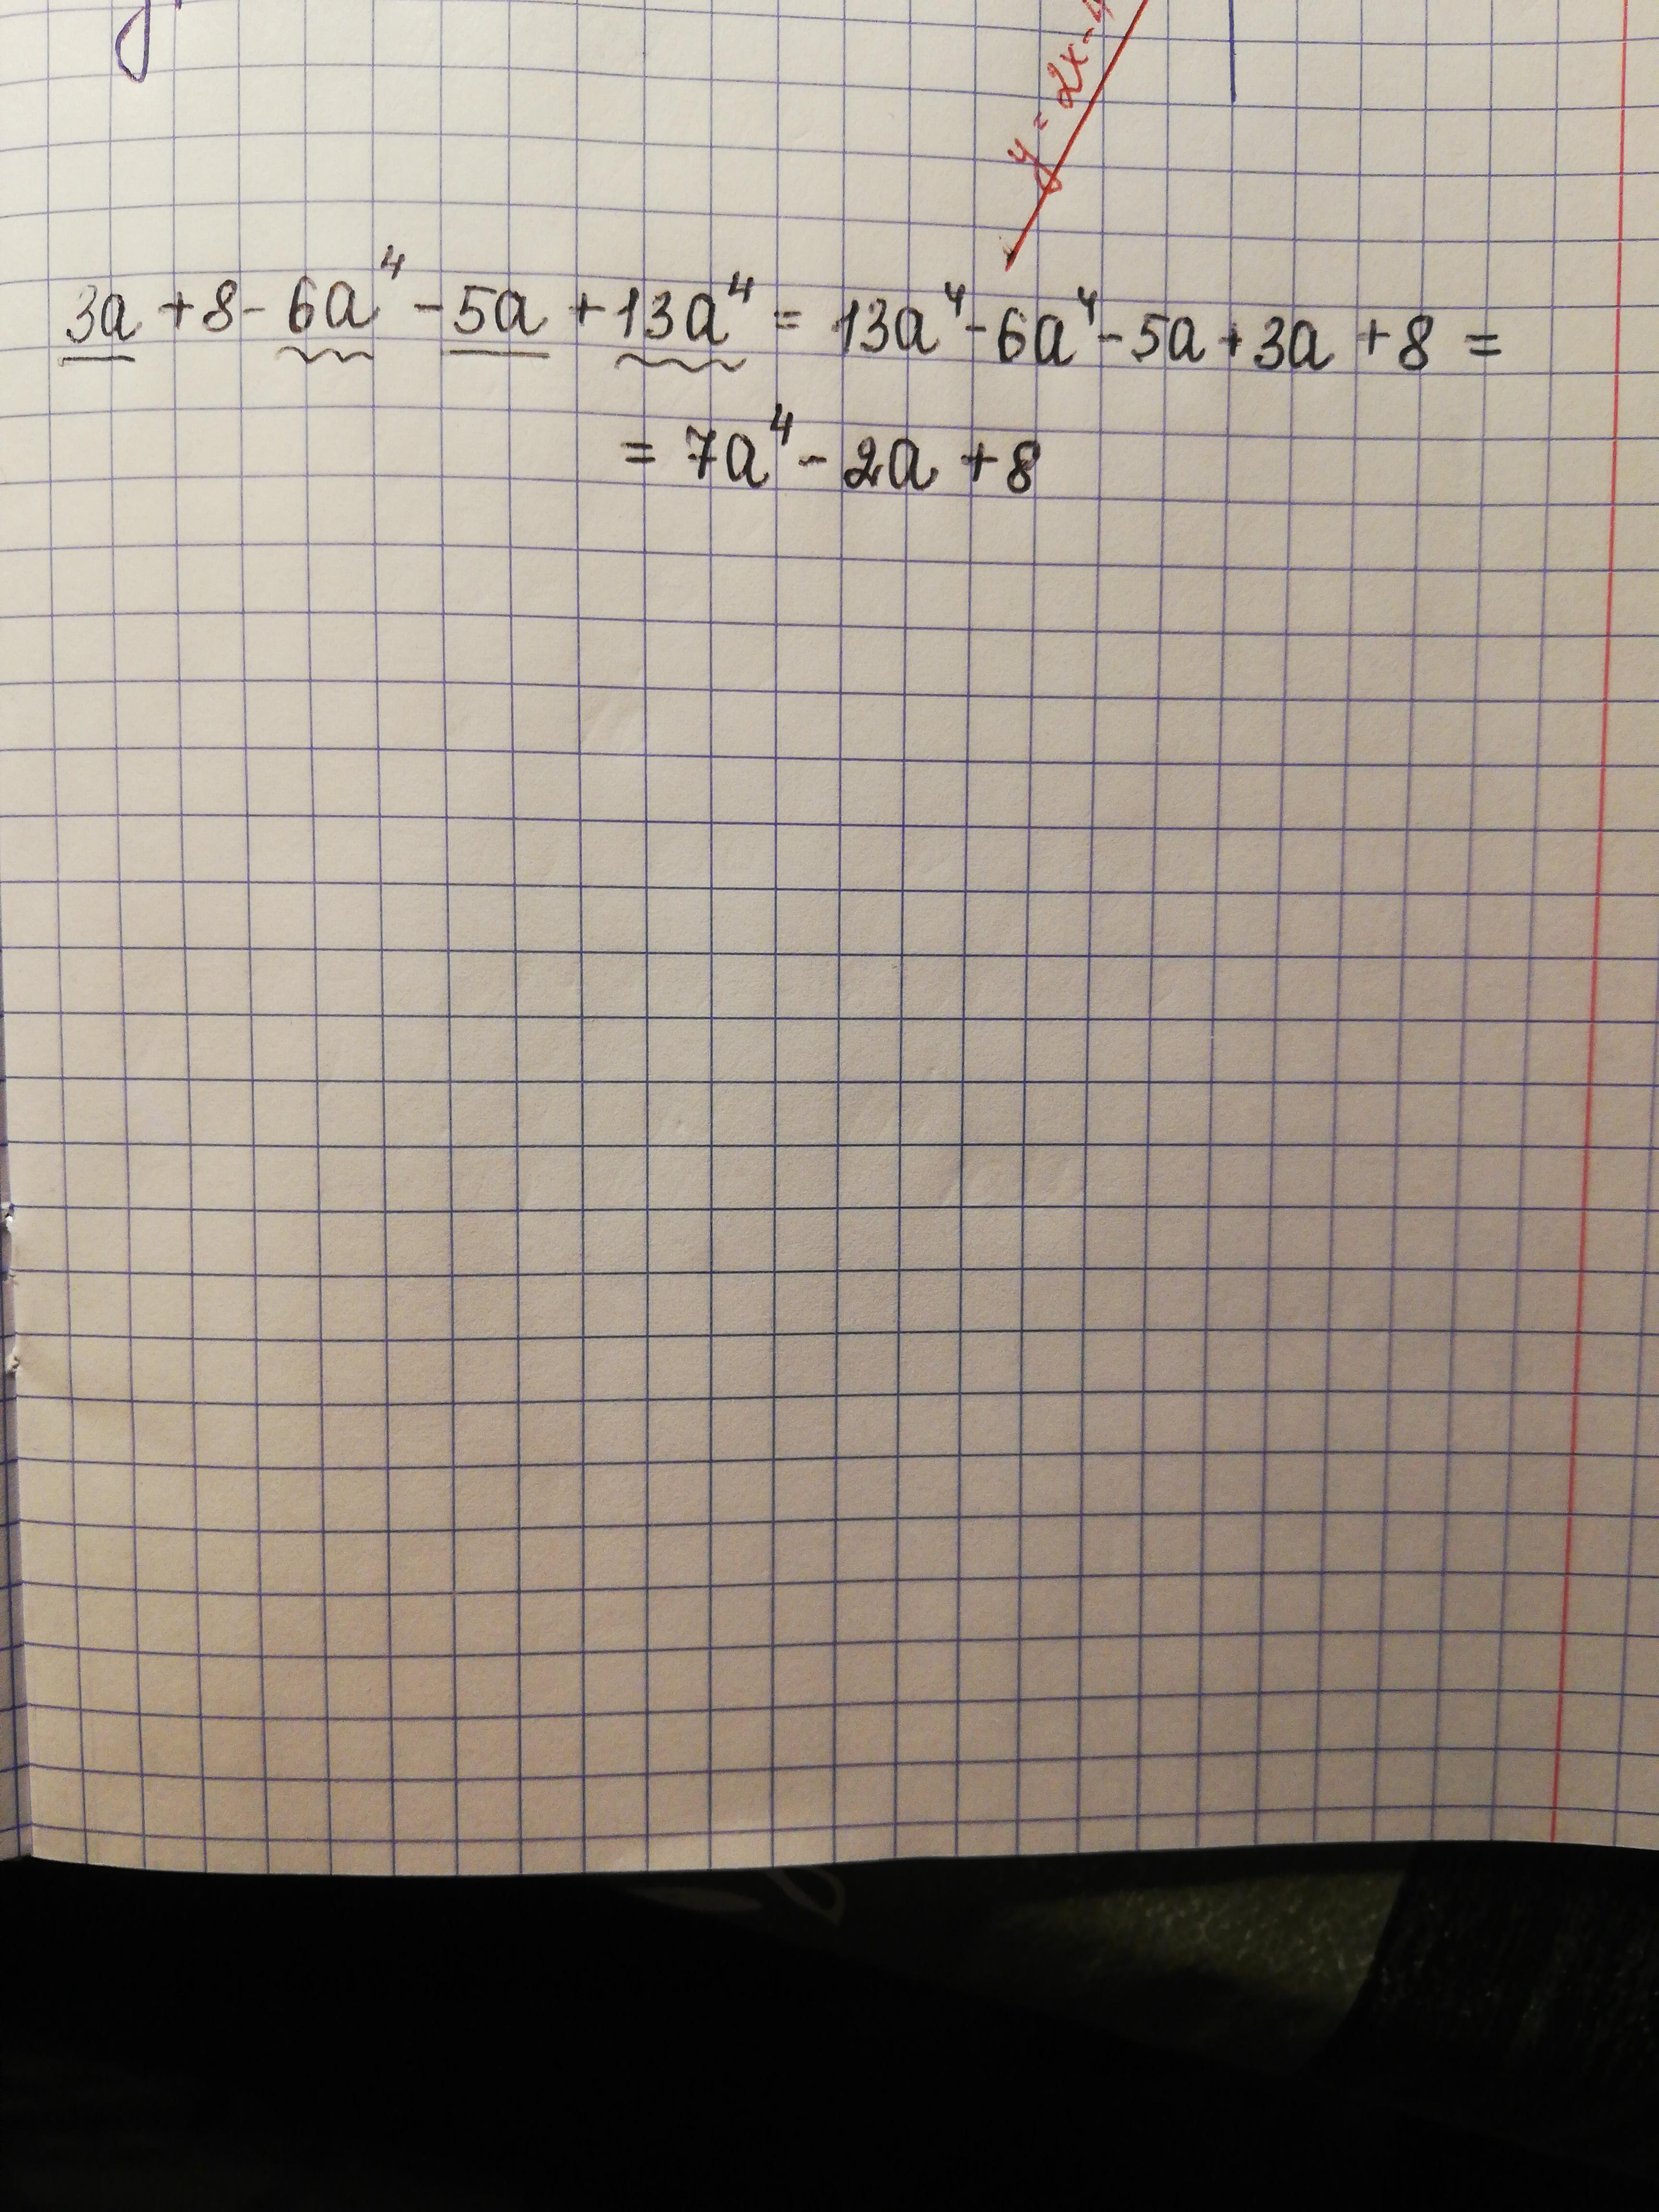 y = 2x-4
3a + 8 - 6a⁴ - 5a + 13a⁴ = 13a⁴ - 6a⁴ - 5a + 3a + 8 =
= 7a⁴ - 2a + 8